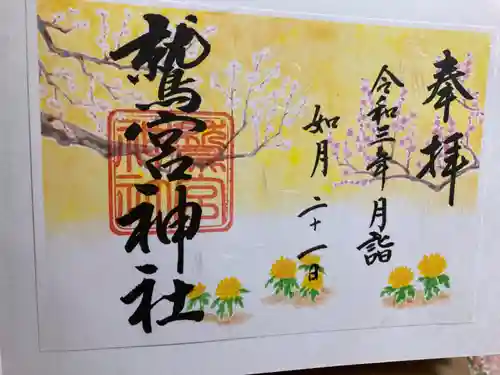 奉拝
令和三年月詣
如月二十一日
鷲宮神社